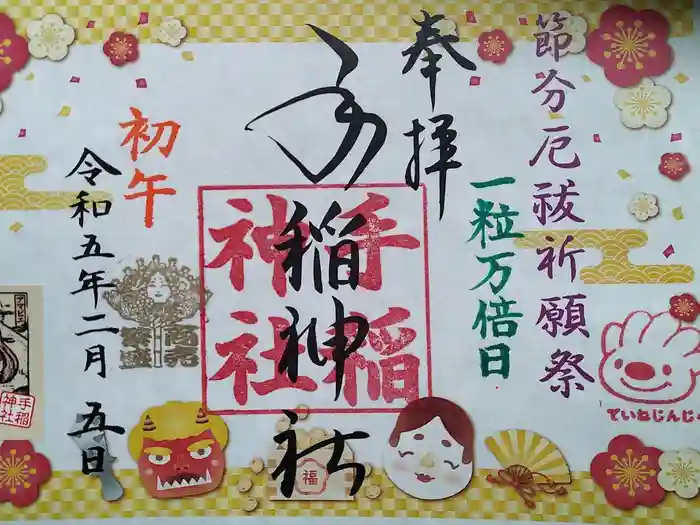 節分厄祓祈願祭
一粒万倍日
奉拝
手稲神社
手稲
神社
初午
令和五年二月五日
商売
繁盛
アマビエ
手稲
神社
福
ていねじんじゃ